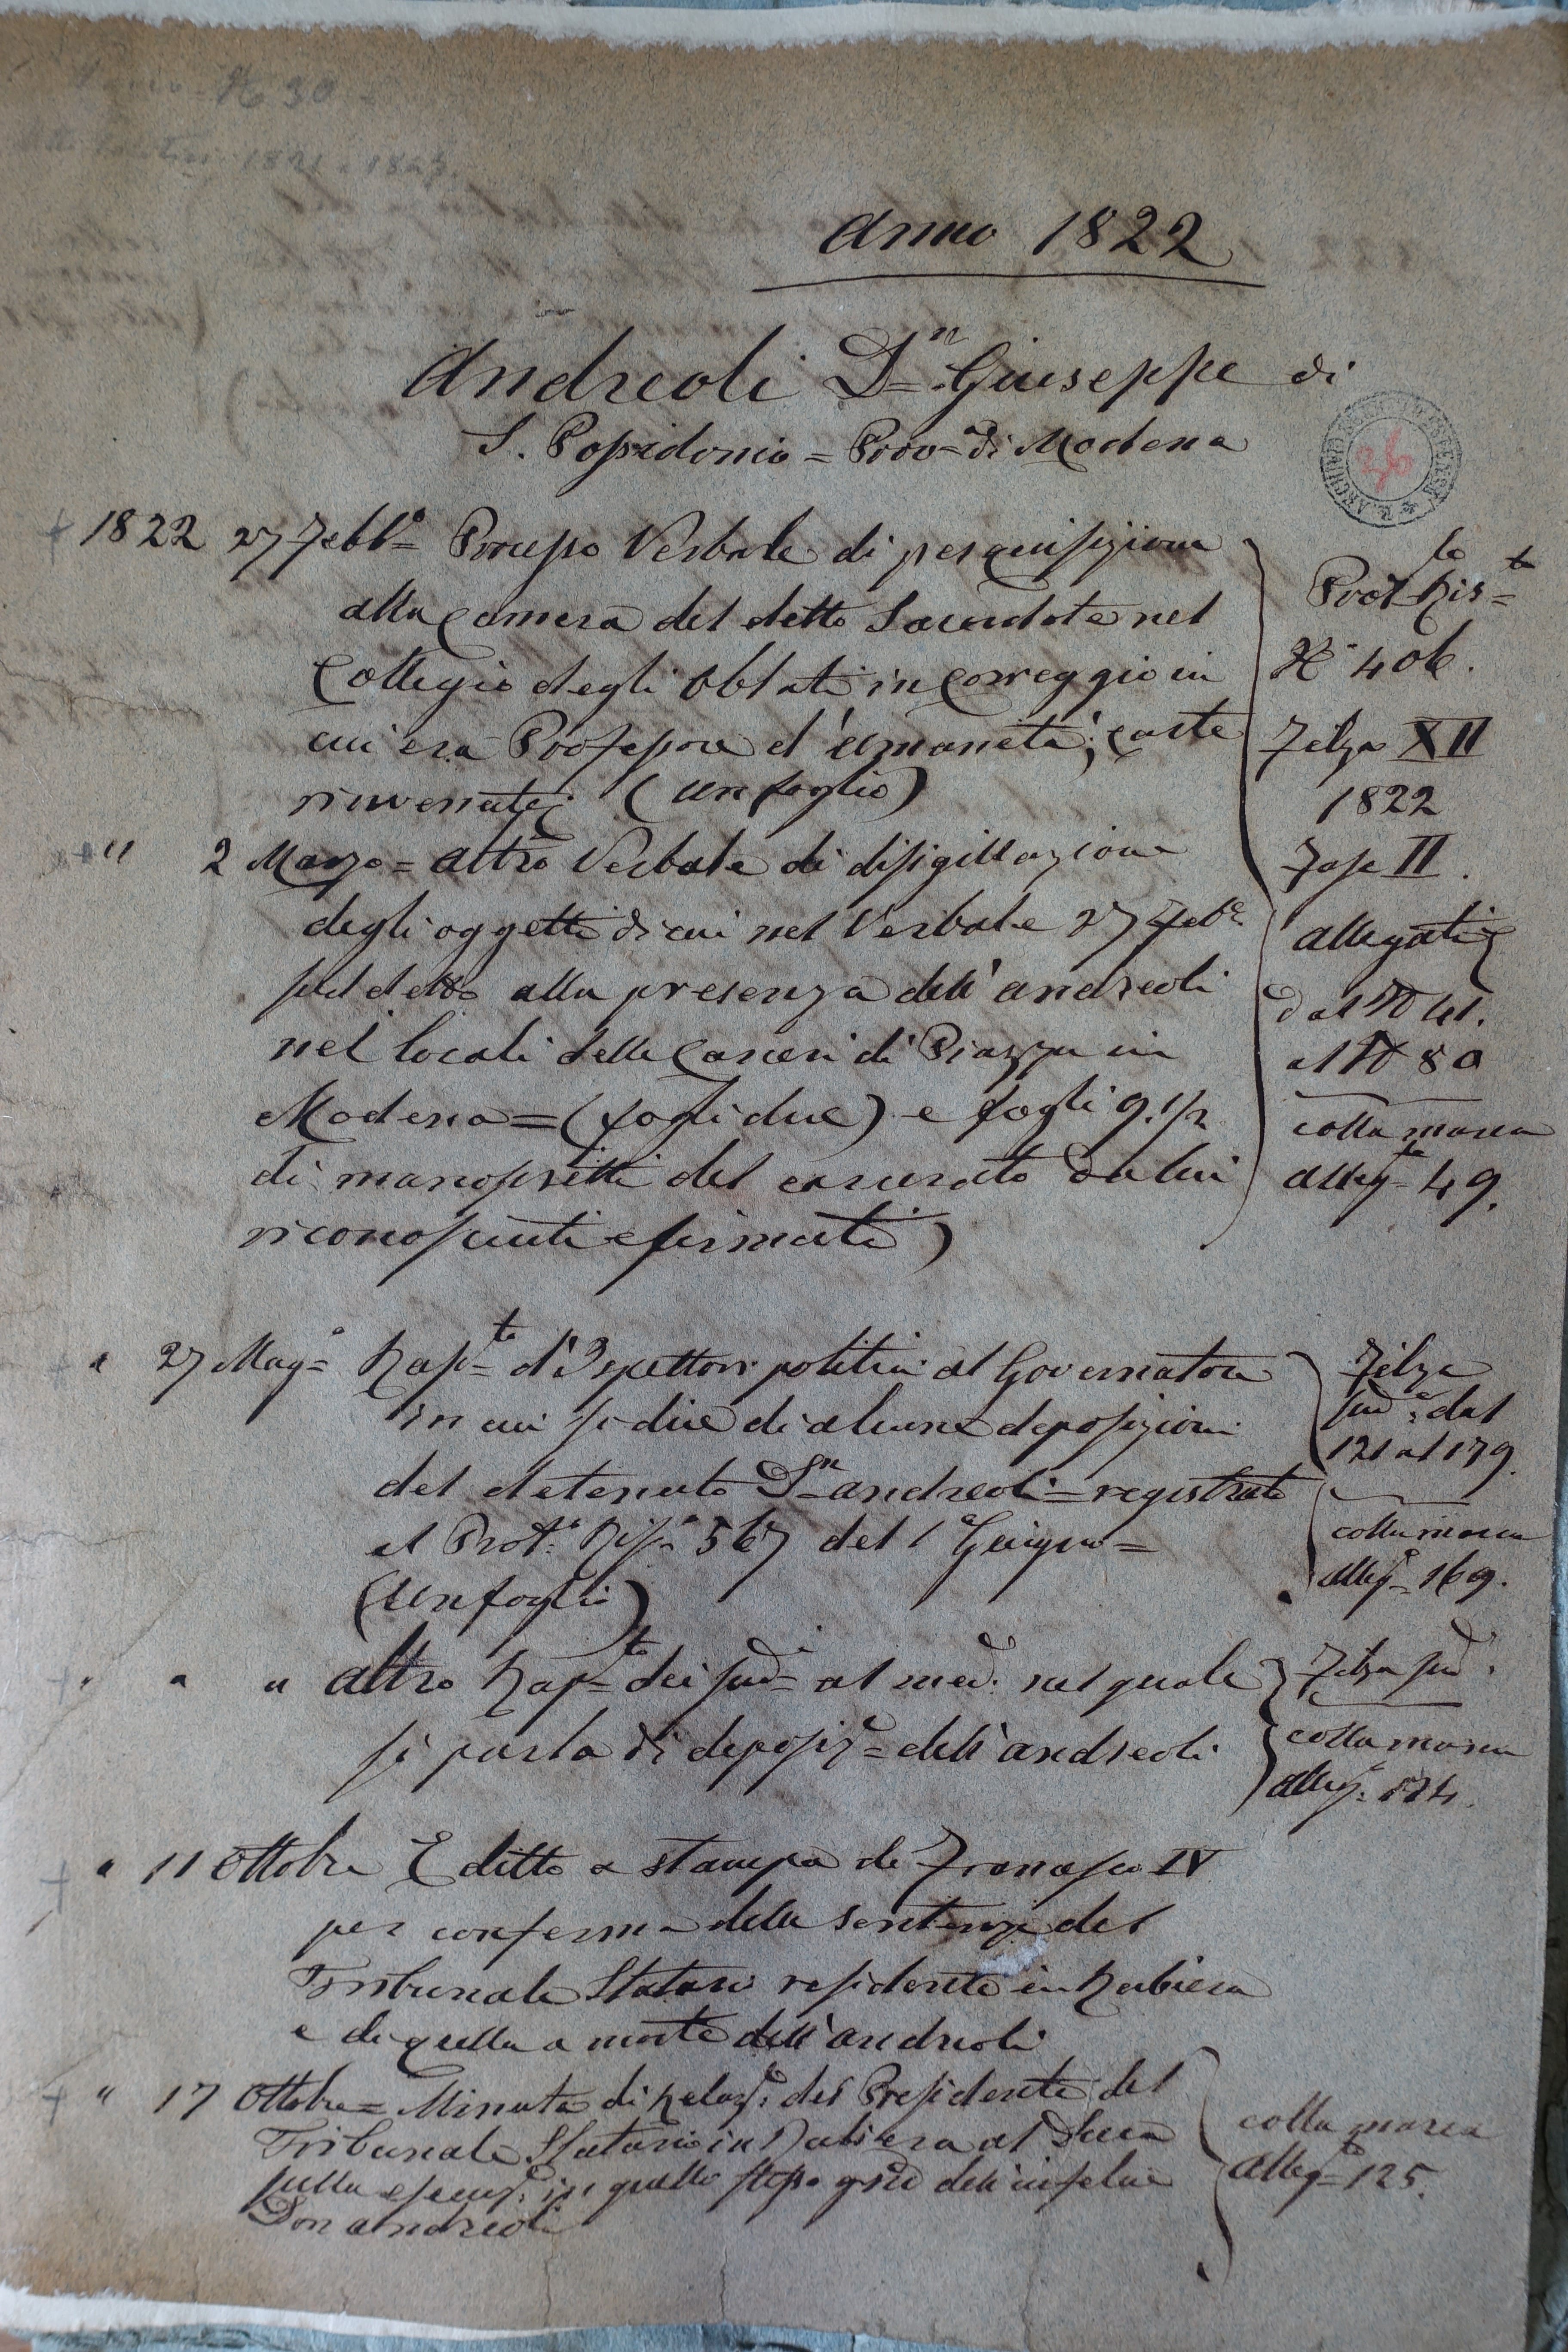 N° 30
1821 = 1847.
Anno 1822
Andreoli Dn= Giuseppe di
S. Possidonio = Prova= di Modena
R. ARCHIVIO
26
1822 27 Febb°= Processo Verbale di perquisizione
alla Camera del detto Sacerdote nel
Collegio degli Oblati in Correggio in
cui era Professore d'umanità; carte
rinvenute; (un foglio)
Protlo Risto=
N° 406.
Filza XII
1822
Fasc II.
" 2 Marzo = altro Verbale di disigillazione
degli oggetti di cui nel Verbale 27 Febe.
suddetto alla presenza dell'Andreoli
nel locali delle Carceri di Piazza in
Modena = (fogli due) e fogli 9. 1/2
di manoscritti del carcerato da lui
riconosciuti e firmati)
allegati
dal N° 41.
al N° 80
colla marca
allegto= 49.
" 27 Mag°= Rapto= d'Ispettori politici al Governatore
in cui si dice di alcune deposizioni
del detenuto Dn= Andreoli = registrato
al Prot°. Ris°. 567 del 1° Giugno =
(Un foglio)
Filza
suda. dal
121 al 179.
colla marca
alleg°= 169.
" " " altro Rapto= dei sudi= al med°. nel quale
si parla di deposize= dell'Andreoli
Filza suda.
colla marca
alleg°. 174.
" 11 Ottobre Editto a stampa di Francesco IV
per conferma delle sentenze del
Tribunale Statario residente in Rubiera
e di quella a morte dell'Andreoli
" 17 Ottobre = Minuta di Relaze: del Presidente del
Tribunale Statario in Rubiera al Duca
sulla esecuze: in quello stesso gno dell'infelice
Don Andreoli
colla marca
Allegto= 125.